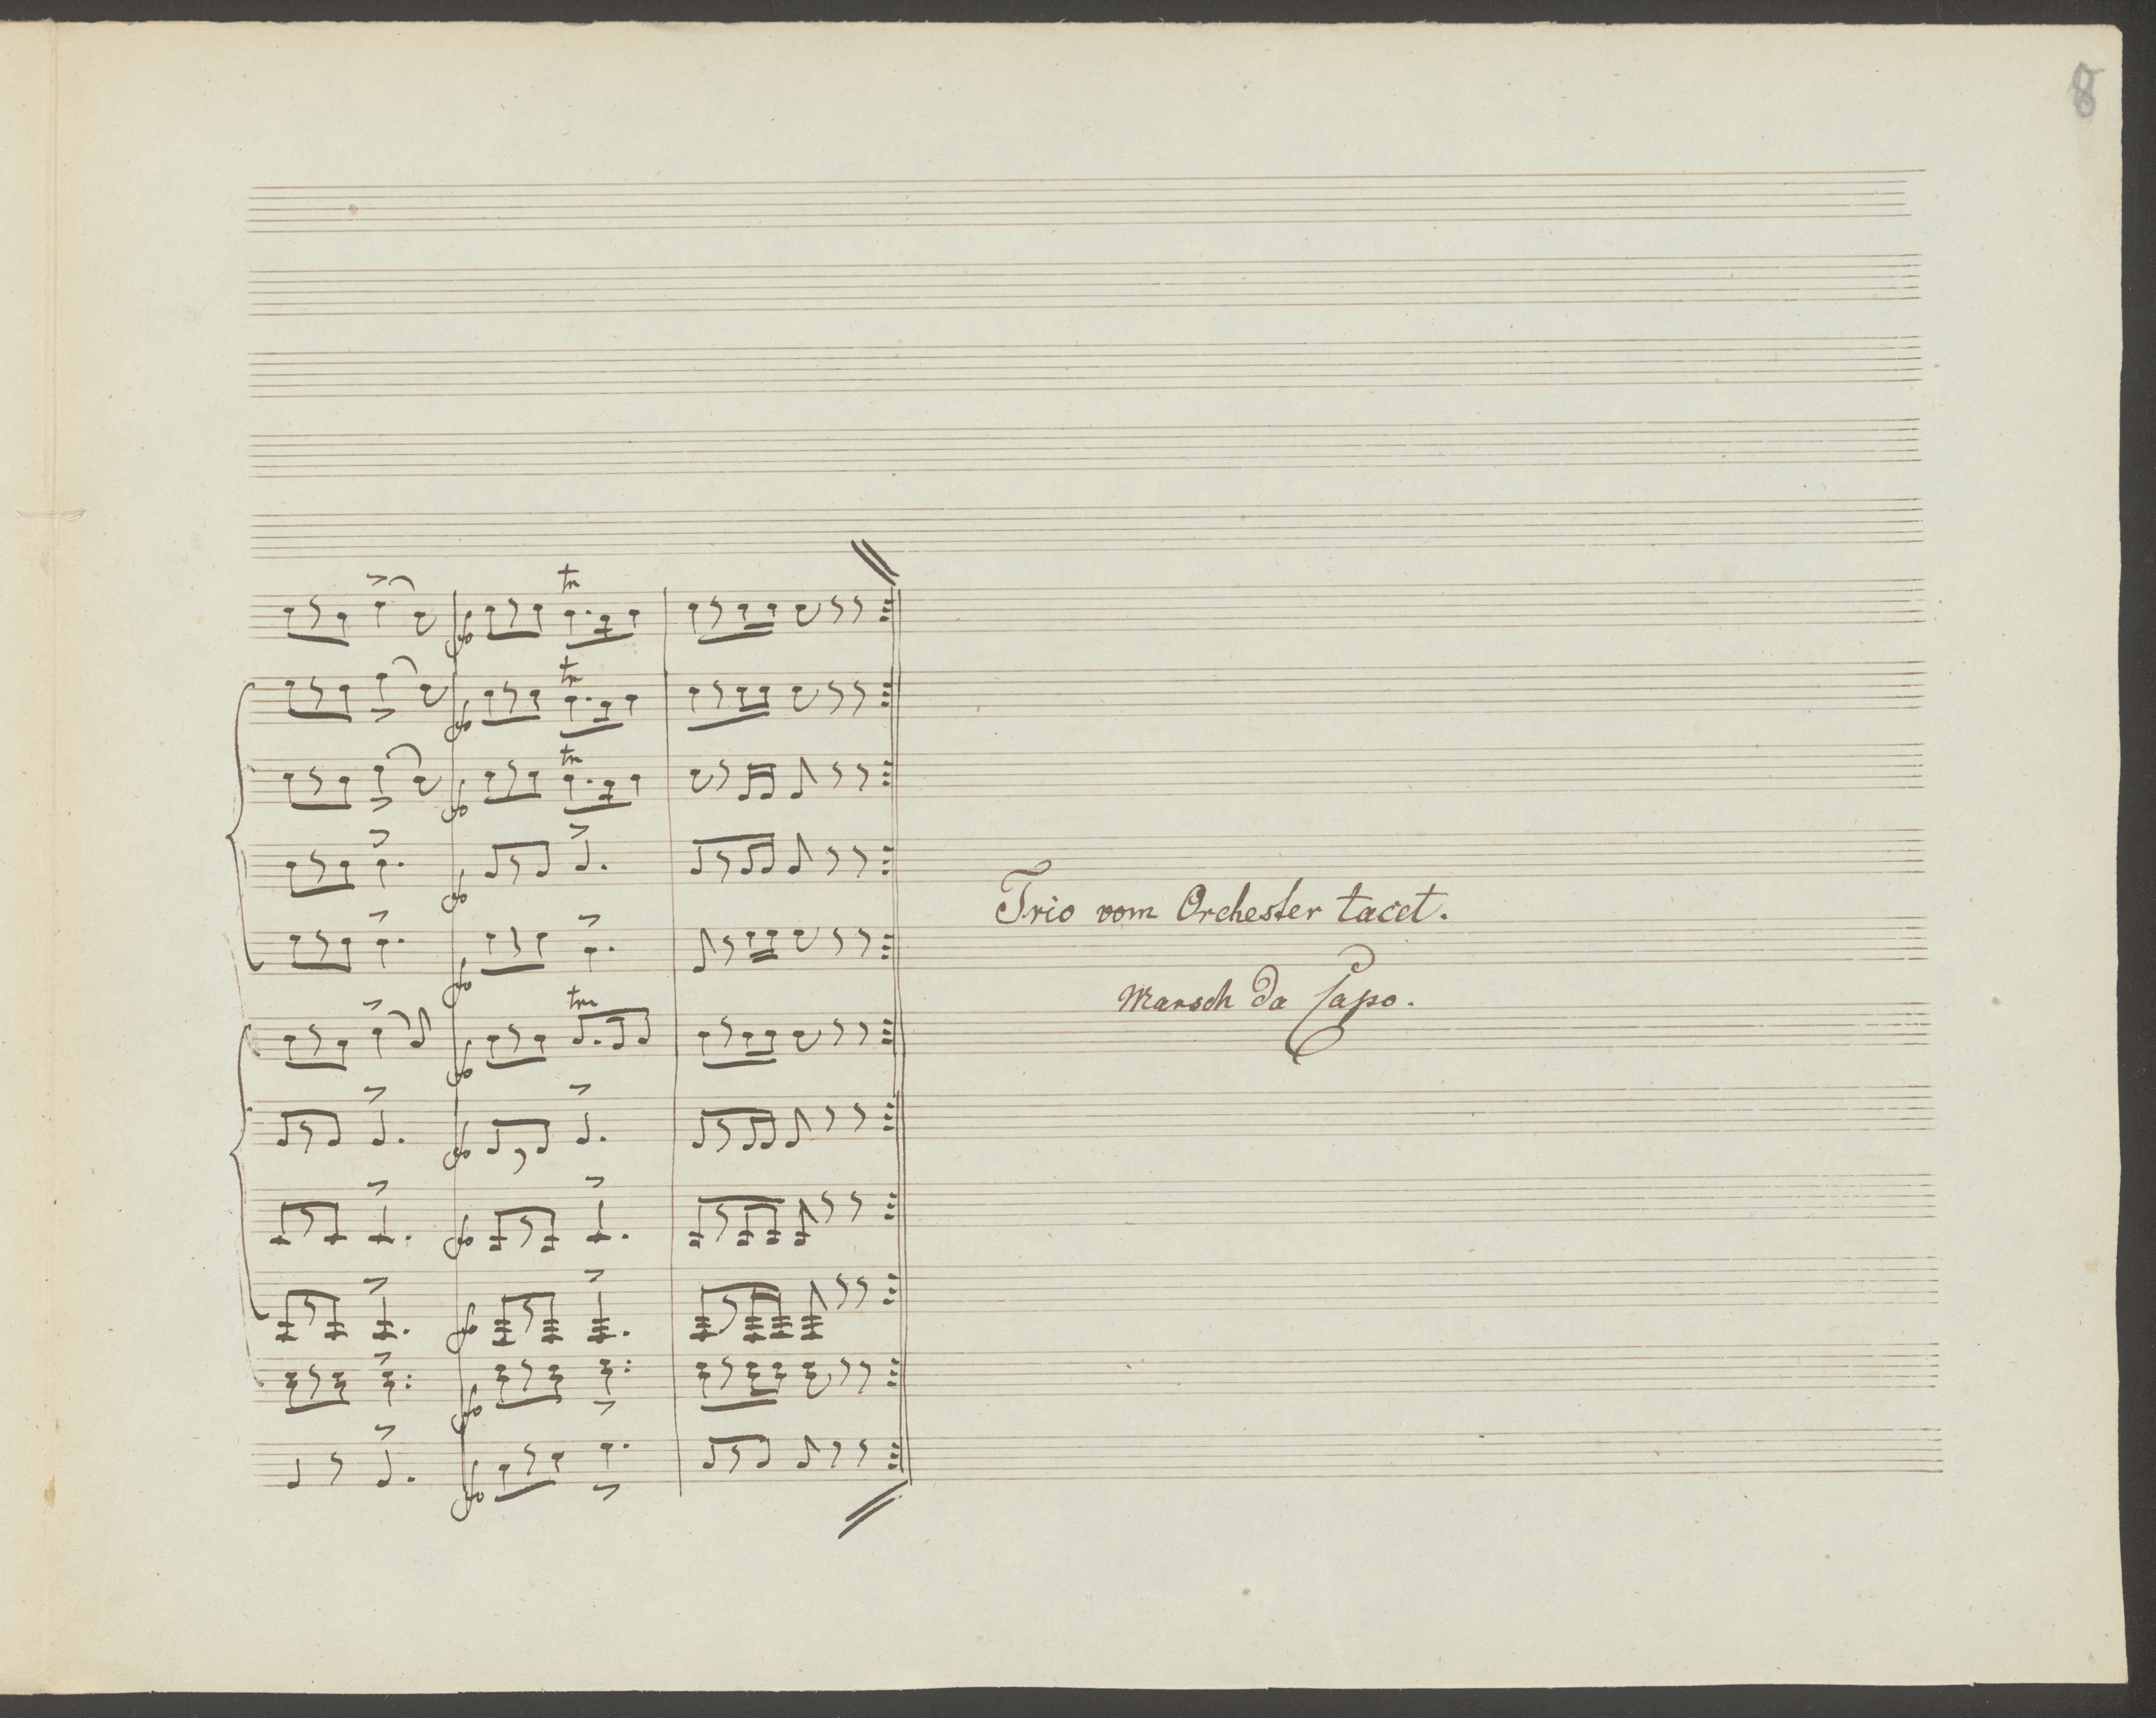 8
tr
tr
tr
Trio vom Orchester tacet.
Marsch da Capo.
tr